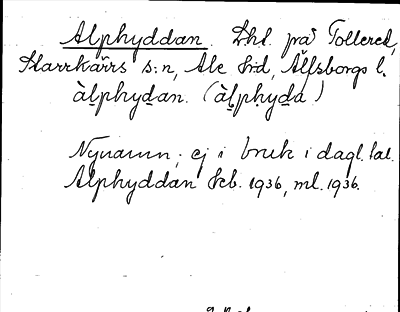 Alphyddan. Lht. på Tollered,
Starrkärrs s:n, Ale hd, Älfsborgs l.
àlphydan. (àlphyda)
Nynamn; ej i bruk i dagl. tal.
Alphyddan Jeb. 1936, ml. 1936.